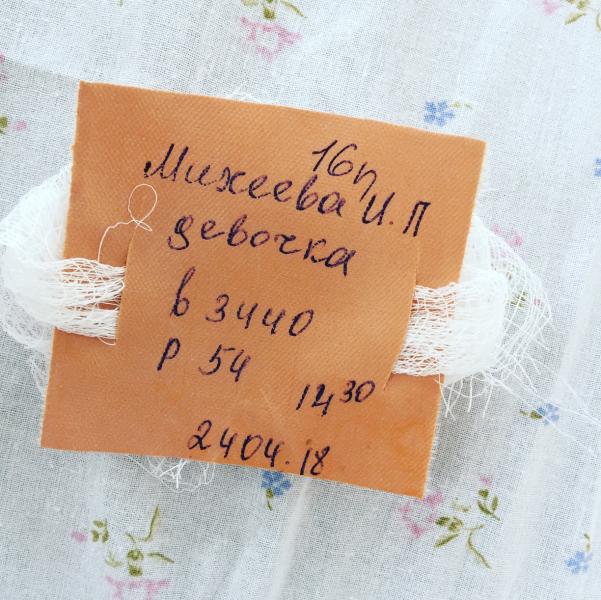 16п
Михеева И.П
девочка
в 3440
р 54
14 30
2404.18